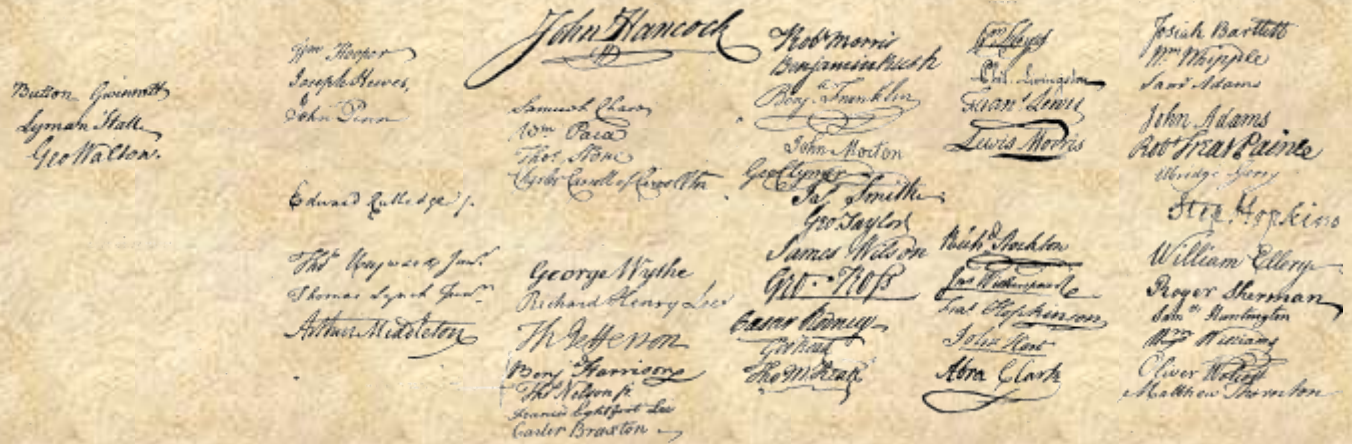 Button Gwinnett
Lyman Hall
Geo Walton.
Wm Hooper
Joseph Hewes,
John Penn
Edward Rutledge /.
Thos Heyward Junr.
Thomas Lynch Junr.
Arthur Middleton
John Hancock
Samuel Chase
Wm Paca
Thos. Stone
Charles Carroll of Carrollton
George Wythe
Richard Henry Lee
Th Jefferson
Benj Harrison
Thos Nelson jr.
Francis Lightfoot Lee
Carter Braxton
Robt Morris
Benjamin Rush
Benj. Franklin
John Morton
Geo Clymer
Jas. Smith
Geo Taylor
James Wilson
Geo. Ross
Caesar Rodney
Geo Read
Tho M:Kean
Wm Floyd
Phil. Livingston
Frans. Lewis
Lewis Morris
Richd. Stockton
Jno Witherspoon
Fras. Hopkinson
John Hart
Abra Clark
Josiah Bartlett
Wm: Whipple
Saml Adams
John Adams
Robt Treat Paine
Elbridge Gerry
Step. Hopkins
William Ellery
Roger Sherman
Samel Huntington
Wm Williams
Oliver Wolcott
Matthew Thornton